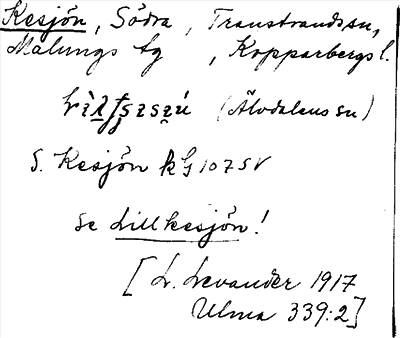 Kesjön, Södra, Transtrands sn,
Malungs tg, Kopparbergs l.
(Älvdalens sn)
S. Kesjön kG 107 SV
se Lillkesjön!
[L. Levander 1917
Ulma 339:2]